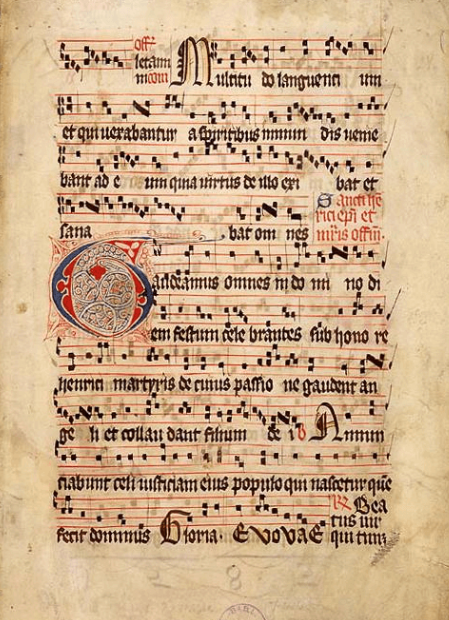 Multitu do languenti um
et qui uexabantur a spiritibus inmun dis uenie
bant ad e um quia uirtus de illo exi bat et
Sancti he
rici epi et
sana bat om nes mris offm.
Gaudeamus omnes in do mi no di
em festum cele brantes sub hono re
henrici martyris de cuius passio ne gaudent an
ge li et collau dant filium de i Annun
ciabunt celi iusticiam eius populo qui nascetur que
Bea
tus uir
fecit dominus Gloria. EVOVAE qui tim